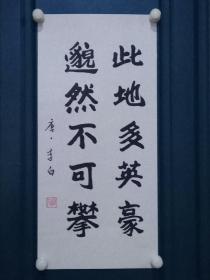 此地多英豪
邈然不可攀
唐·李白